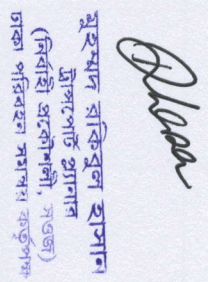 মুহাম্মদ রকিবুল হাসান
ট্রান্সপোর্ট প্ল্যানার
(নির্বাহী প্রকৌশলী, সওজ)
ঢাকা পরিবহন সমন্বয় কর্তৃপক্ষ